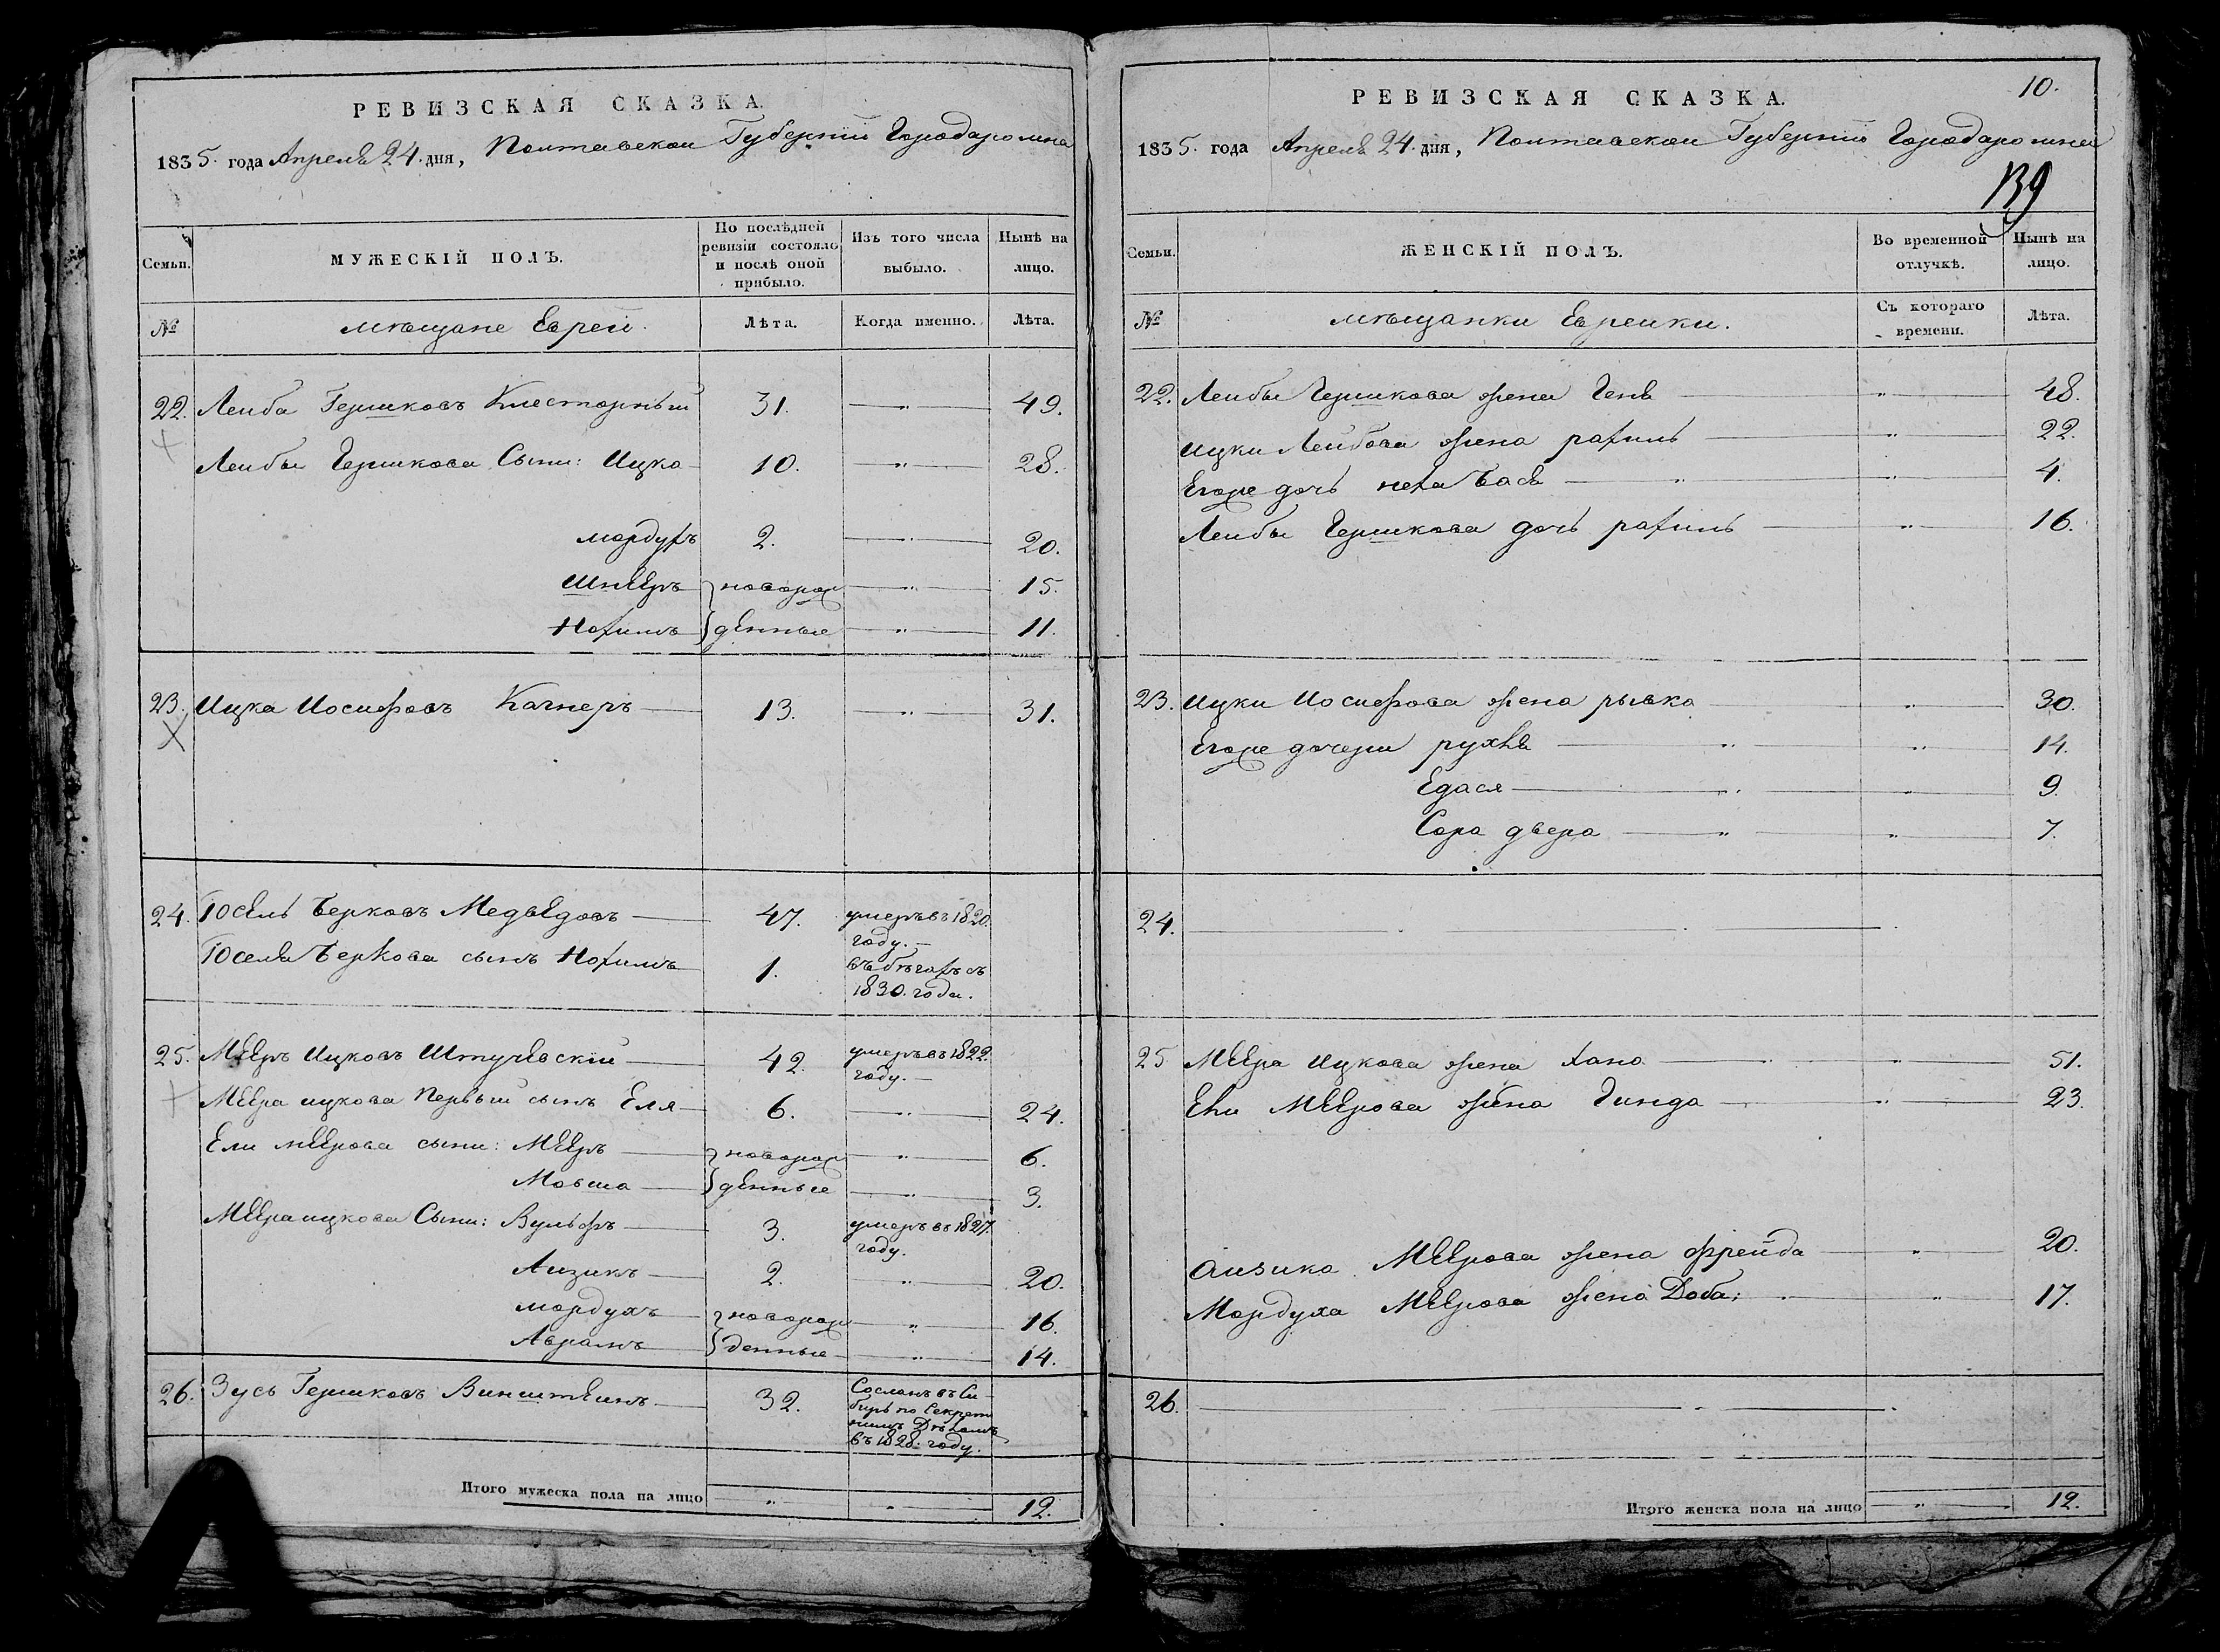 РЕВИЗСКАЯ СКАЗКА.
1835. года Апреля 24. дня, Полтавской Губернии Города Ромна
Семьи.
МУЖЕСКІЙ ПОЛЪ.
По послѣдней ревизіи состояло и послѣ оной прибыло.
Изъ того числа выбыло.
Нынѣ на лицо.
№
мѣщане Евреи.
Лѣта.
Когда именно.
Лѣта.
22. Лейба Гершковъ 31. — „ — 49.
Лейбы Гершкова Сыни: Ицка 10. — „ — 28.
мордухъ 2. — „ — 20.
Шнееръ } новорож — „ — 15.
Нохимъ } денные — „ — 11.
23. Ицка Иосифовъ 13. — „ — 31.
24. Іосель Берковъ Медведовъ 47. умеръ въ 1820. году. —
Іоселя Беркова сынъ Нохимъ 1. въ бѣгахъ съ 1830. года.
25. Мееръ Ицковъ Штучевскій 42. умеръ въ 1822. году. —
Меера ицкова Первый сынъ Еля 6. — „ — 24.
Ели меерова сыни: Мееръ } новорож — „ — 6.
Мовша } денные — „ — 3.
Меера ицкова Сыни: Вульфъ 3. умеръ въ 1827. году.
Аизикъ 2. — „ — 20.
мордухъ } новорож — „ — 16.
Аврамъ } денные — „ — 14.
26. Зусь Гершковъ Винштеинъ 32. Сосланъ въ Сибирь по Секретнимъ Дѣламъ въ 1828. году.
Итого мужеска пола на лицо „ „ 12.
10.
РЕВИЗСКАЯ СКАЗКА.
1835. года Апреля 24. дня, Полтавской Губернии Города Ромна
139
Семьи.
ЖЕНСКІЙ ПОЛЪ.
Во временной отлучкѣ.
Нынѣ на лицо.
№
мѣщанки Евреики.
Съ котораго времени.
Лѣта.
22. Лейбы Гершкова жена Геня — „ — 48.
Ицки Лейбова жена рахиль — „ — 22.
Егоже дочь неха Бася — „ — „ — 4.
Лейбы Гершкова дочь рахиль — „ — 16.
23. Ицки Иосифова жена рывка — „ — 30.
Егоже дочери рухля — „ — „ — 14.
Едася — „ — „ — 9.
Сора двера — „ — „ — 7.
24.
25 Меера Ицкова жена Хана — „ — „ — 51.
Ели Меерова жена Гинда — „ — 23.
Аизика Меерова жена фрейда — „ — 20.
Мордуха Меерова жена Доба; — „ — 17.
26.
Итого женска пола на лицо „ 12.